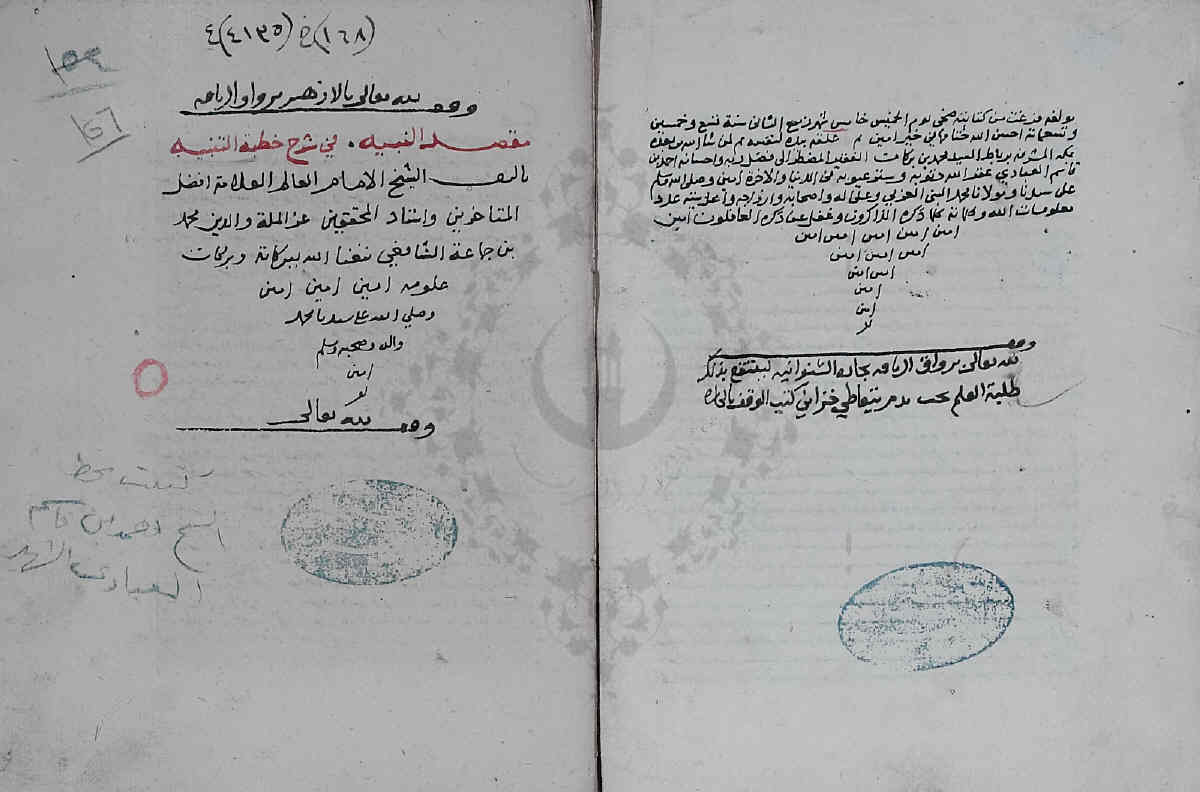 مؤلفه فرغت من كتابته ضحى يوم الخميس خامس شهر ربيع الثاني سنة تسع وخمسين
وتسعمائة احسن الله ختامها في خير امين علقه بيده لنفسه ثم لمن شاء الله من بعده
بمكة المشرفة برباط السيد محمد بن بركات الفقير المضطر الى فضل ربه واحسانه احمد بن
قاسم العبادي غفر الله ذنوبه وستر عيوبه في الدنيا والاخرة امين وصلى الله وسلم
على سيدنا ومولانا محمد النبي العربي وعلى اله واصحابه وازواجه عدد
معلومات الله كلما ذكره الذاكرون وغفل عن ذكره الغافلون امين
امين امين امين امين امين
امين امين امين
امين امين
امين
امين
وقف
لله تعالى برواق الريافه لينتفع بذلك
طلبة العلم
(١٦٨) خ (٤١٣٥) ٤
وقف لله تعالى بالازهر برواق الريافه
مقصد النبيه في شرح خطبة التنبيه
تاليف الشيخ الامام العالم العلامة افضل
المتاخرين واستاد المحققين عز الملة والدين محمد
بن جماعة الشافعي نفعنا الله ببركاته وبركات
علومه امين امين امين
وصلى الله على سيدنا محمد
واله وصحبه وسلم
امين
وقف لله تعالى
كتبت بخط
الشيخ احمد بن قاسم
العبادي الشهير